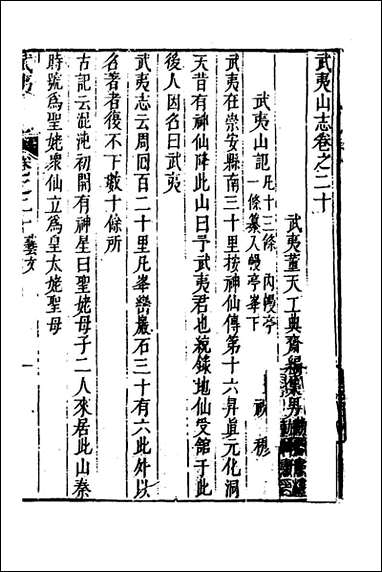 武夷山志卷之二十
武夷董天工典齋編 男
武夷山記 凡十三條 內幔亭
一條纂入幔亭峯下 祝穆
武夷在崇安縣南三十里按神仙傳第十六昇眞元化洞
天昔有神仙降此山曰予武夷君也統錄地仙受館于此
後人因名曰武夷
武夷志云周囘百二十里凡峯巒巖石三十有六此外以
名著者復不下數十餘所
古記云混沌初開有神星曰聖姥母子二人來居此山秦
時號爲聖姥衆仙立爲皇太姥聖母
武夷 卷之二十 藝文